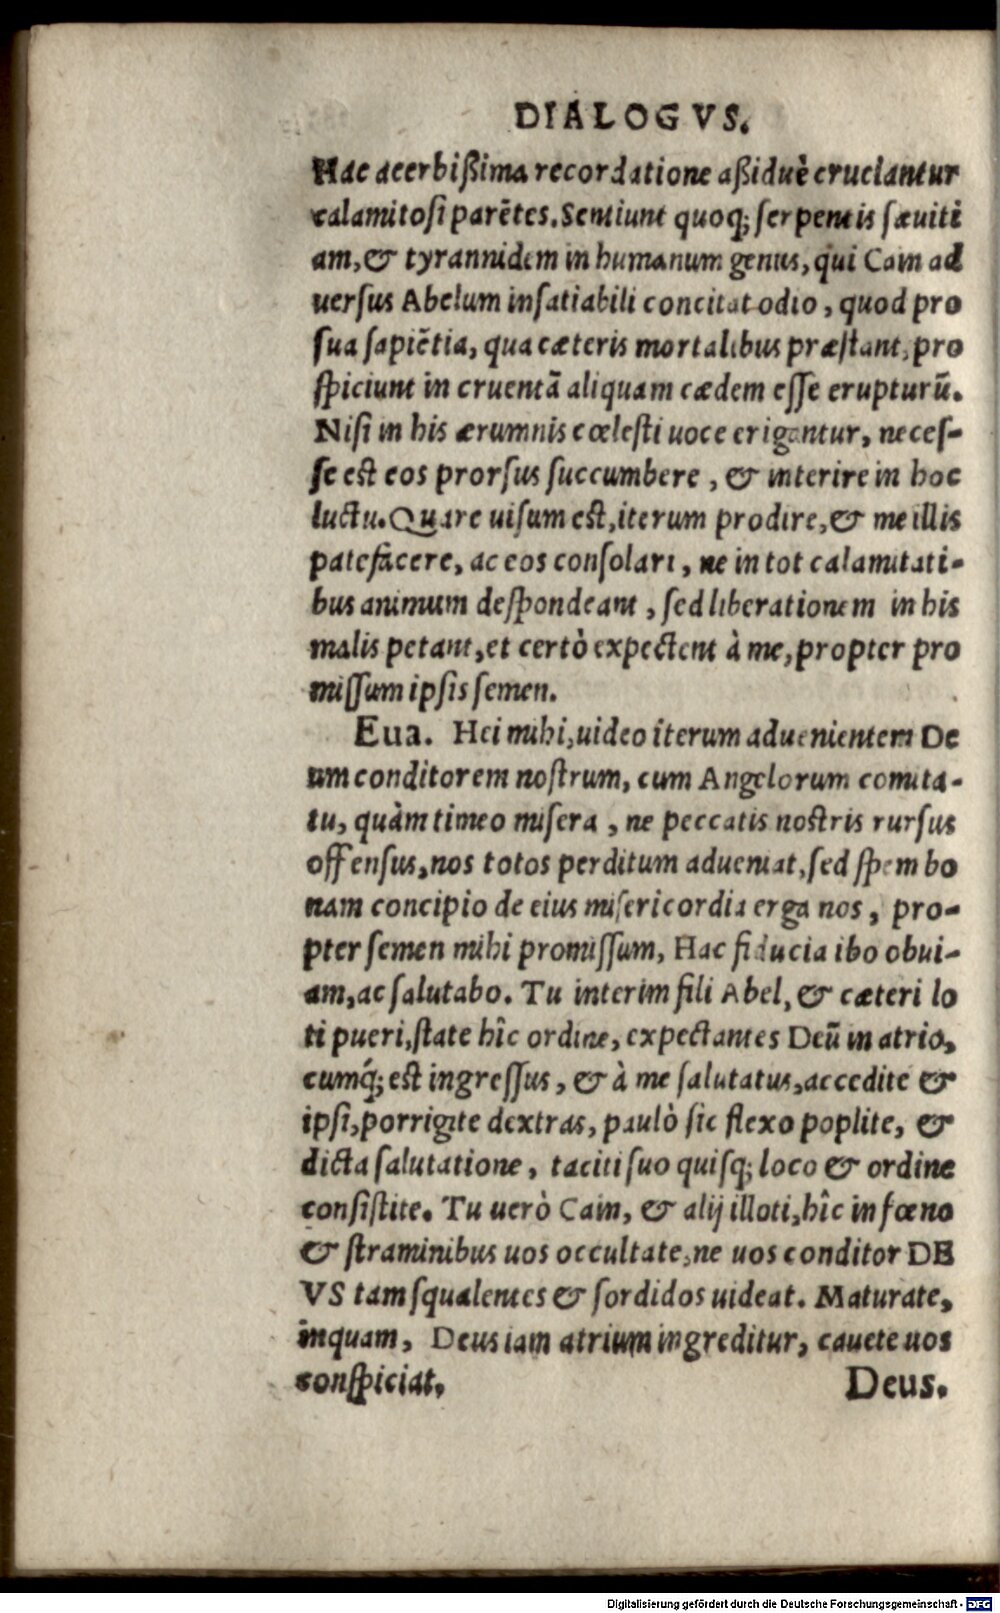 DIALOGVS.
Hac acerbißima recordatione aßiduè cruciantur
calamitosi parẽtes. Sentiunt quoq; serpentis sæuiti
am, & tyrannidem in humanum genus, qui Cain ad
uersus Abelum insatiabili concitat odio, quod pro
sua sapiẽtia, qua cæteris mortalibus præstant, pro
spiciunt in cruentã aliquam cædem esse erupturũ.
Nisi in his ærumnis cœlesti uoce erigantur, neces-
se est eos prorsus succumbere, & interire in hoc
luctu. Quare uisum est, iterum prodire, & me illis
patefacere, ac eos consolari, ne in tot calamitati-
bus animum despondeant, sed liberationem in his
malis petant, et certò expectent à me, propter pro
missum ipsis semen.
Eua. Hei mihi, uideo iterum aduenientem De
um conditorem nostrum, cum Angelorum comita-
tu, quàm timeo misera, ne peccatis nostris rursus
offensus, nos totos perditum adueniat, sed spem bo
nam concipio de eius misericordia erga nos, pro-
pter semen mihi promissum, Hac fiducia ibo obui-
am, ac salutabo. Tu interim fili Abel, & cæteri lo
ti pueri, state hîc ordine, expectantes Deũ in atrio,
cumq́; est ingressus, & à me salutatus, accedite &
ipsi, porrigite dextras, paulò sic flexo poplite, &
dicta salutatione, taciti suo quisq; loco & ordine
consistite. Tu uerò Cain, & alij illoti, hîc in fœno
& straminibus uos occultate, ne uos conditor DE
VS tam squalentes & sordidos uideat. Maturate,
inquam, Deus iam atrium ingreditur, cauete uos
conspiciat.
Deus.
Digitalisierung gefördert durch die Deutsche Forschungsgemeinschaft - DFG